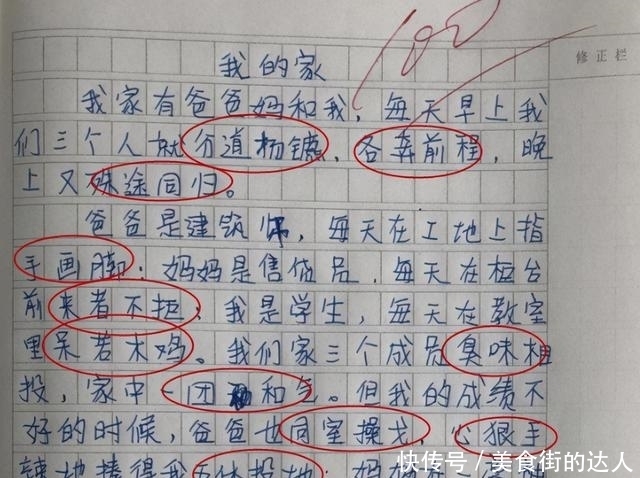 100
修正栏
我的家
我家有爸爸妈和我，每天早上我
们三个人就分道扬镳，各奔前程，晚
上又殊途同归。
爸爸是建筑师，每天在工地上指
手画脚；妈妈是售货员，每天在柜台
前来者不拒，我是学生，每天在教室
里呆若木鸡。我们家三个成员臭味相
投，家中一团和气。但我的成绩不
好的时候，爸爸也同室操戈，心狠手
辣地揍得我五体投地；妈妈在
快传号／美食街的达人